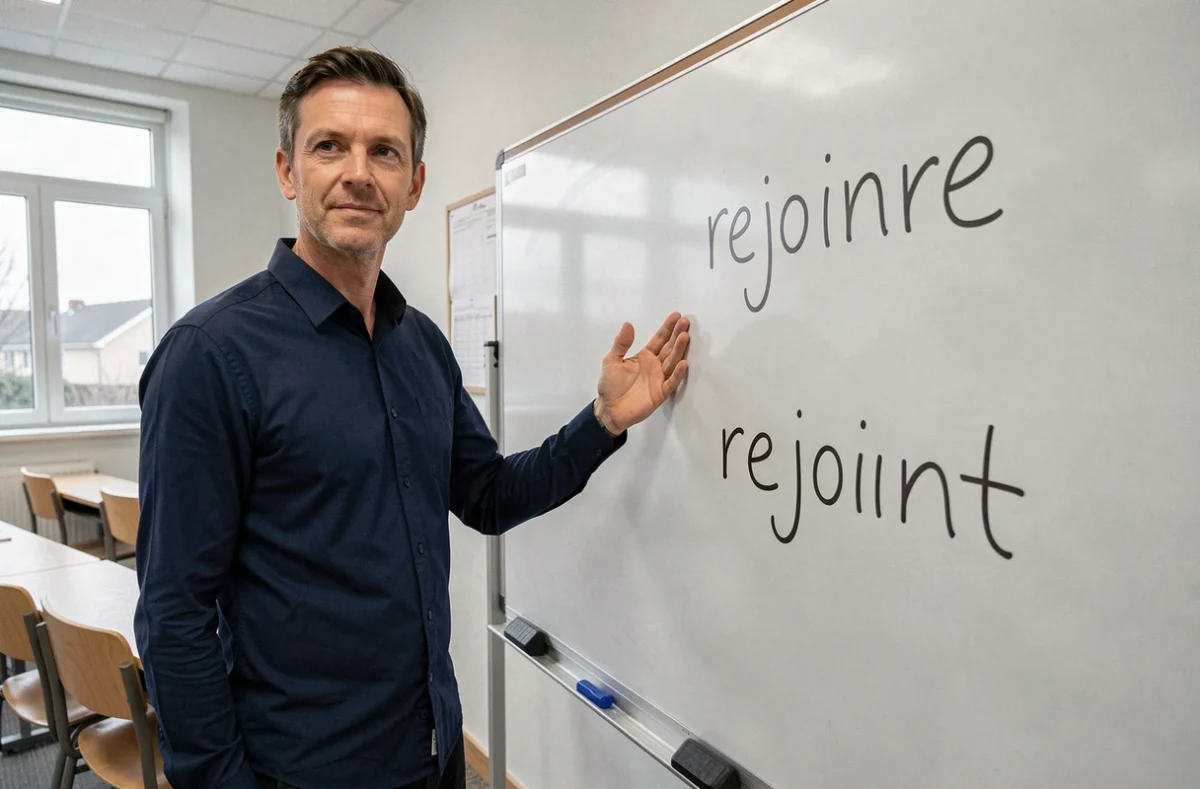 rejoinre
rejoiint